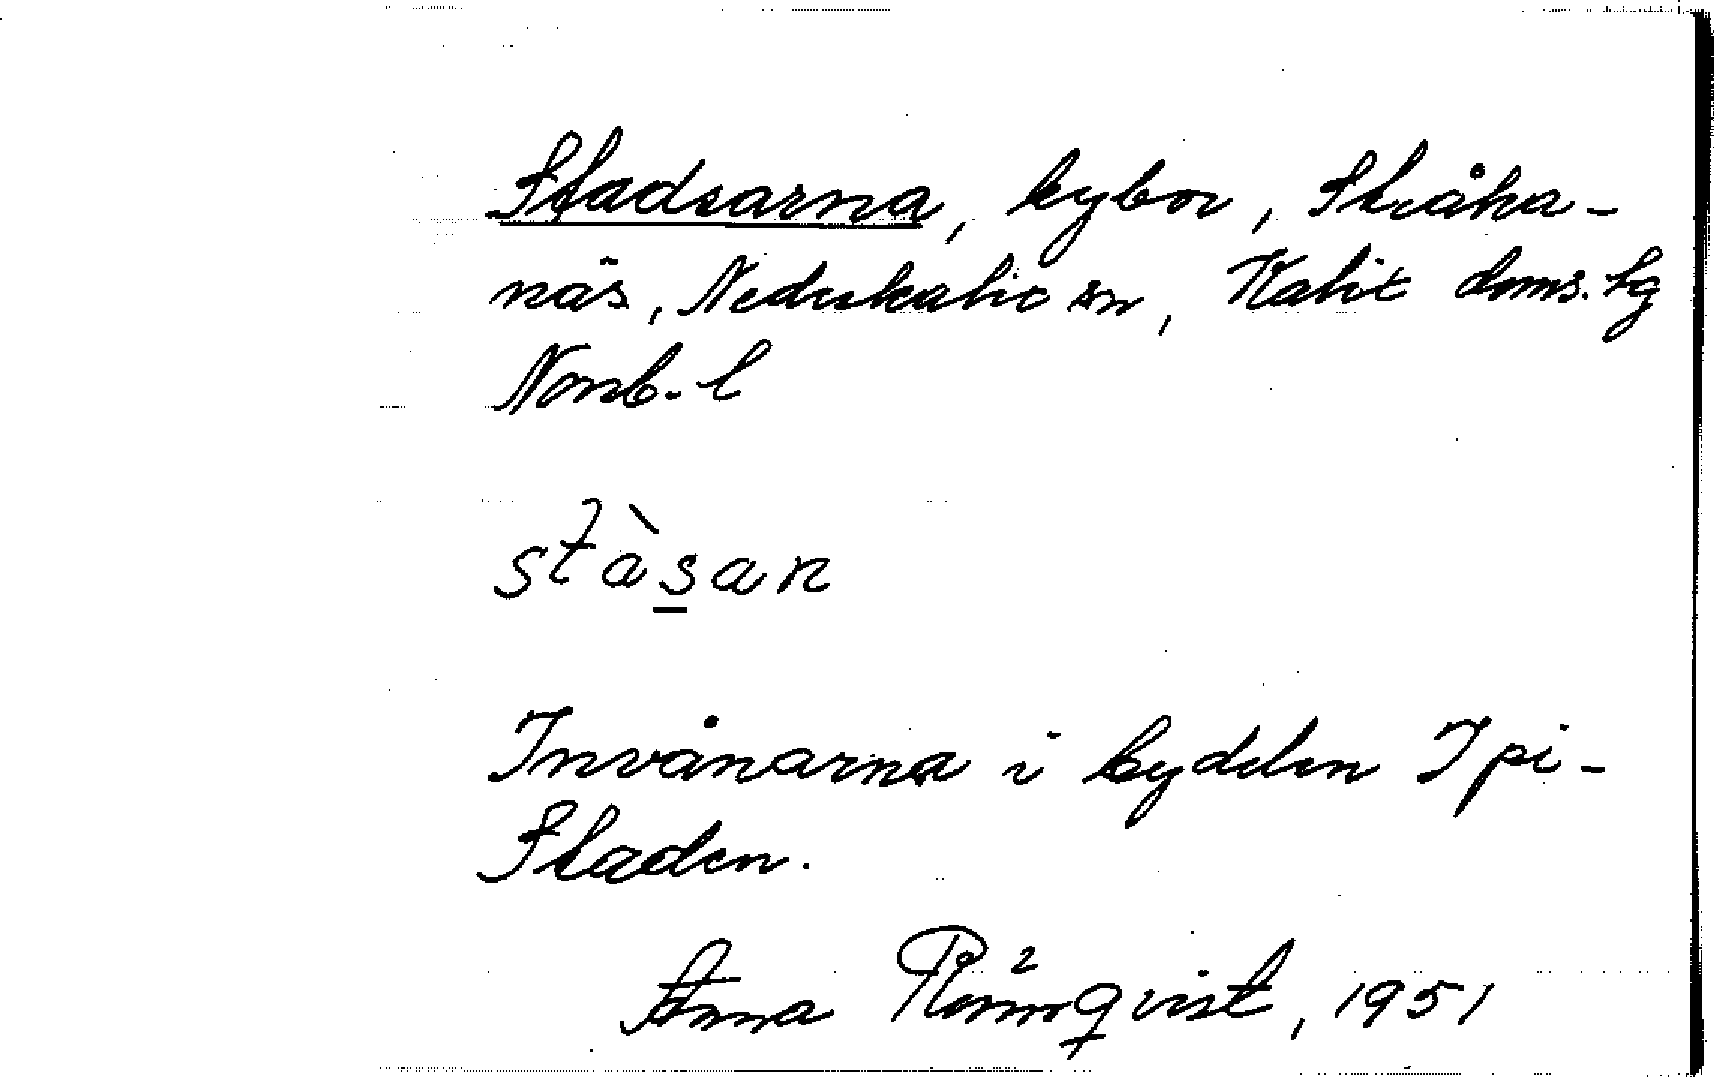 Stadsarna, bybor, Stråka-
näs, Nederkalix sn, Kalix doms.lg
Norrb. l
stàsan
Invånarna i bydelen Ipi-
Staden.
Anna Rönnqvist, 1951